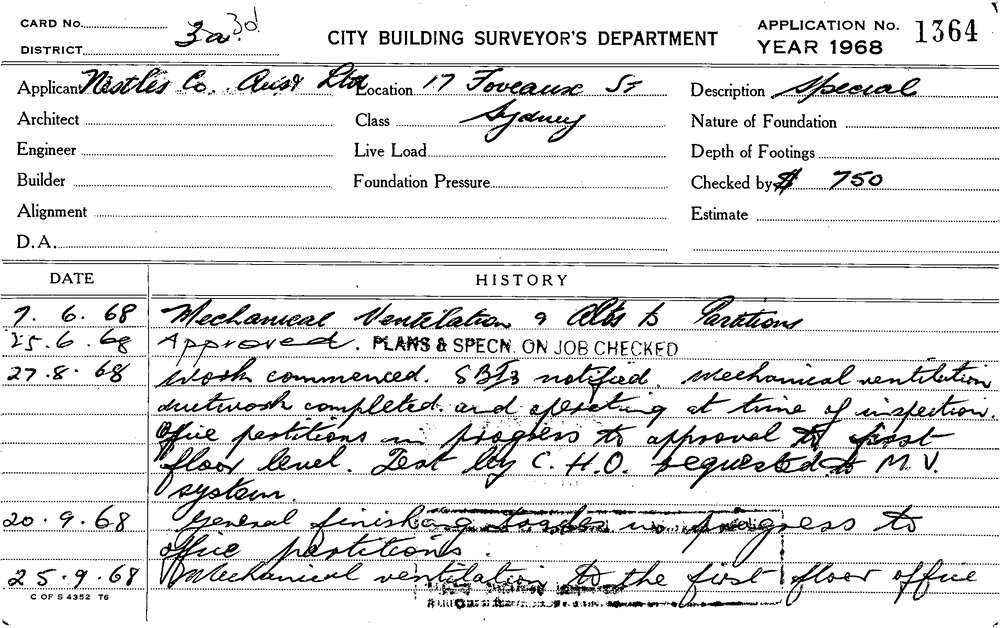 CARD No. 3a 3d
DISTRICT
CITY BUILDING SURVEYOR'S DEPARTMENT
APPLICATION No. 1364
YEAR 1968
Applicant Nestles Co. Aust Ltd Location 17 Foveaux St Description Special
Architect Class Sydney Nature of Foundation
Engineer Live Load Depth of Footings
Builder Foundation Pressure Checked by $ 750
Alignment Estimate
D.A.
DATE HISTORY
7. 6. 68 Mechanical Ventilation & Alts to Partitions
25.6.68 Approved. PLANS & SPECN. ON JOB CHECKED
27.8.68 Work commenced. notified. Mechanical ventilation
ductwork completed and operating at time of inspection.
Office partitions in progress to approval to first
floor level. Test by C.H.O. requested to M.V.
system.
20.9.68 General finishing in progress to
office partitions.
25.9.68 Mechanical ventilation to the first floor office
C OF S 4352 T6